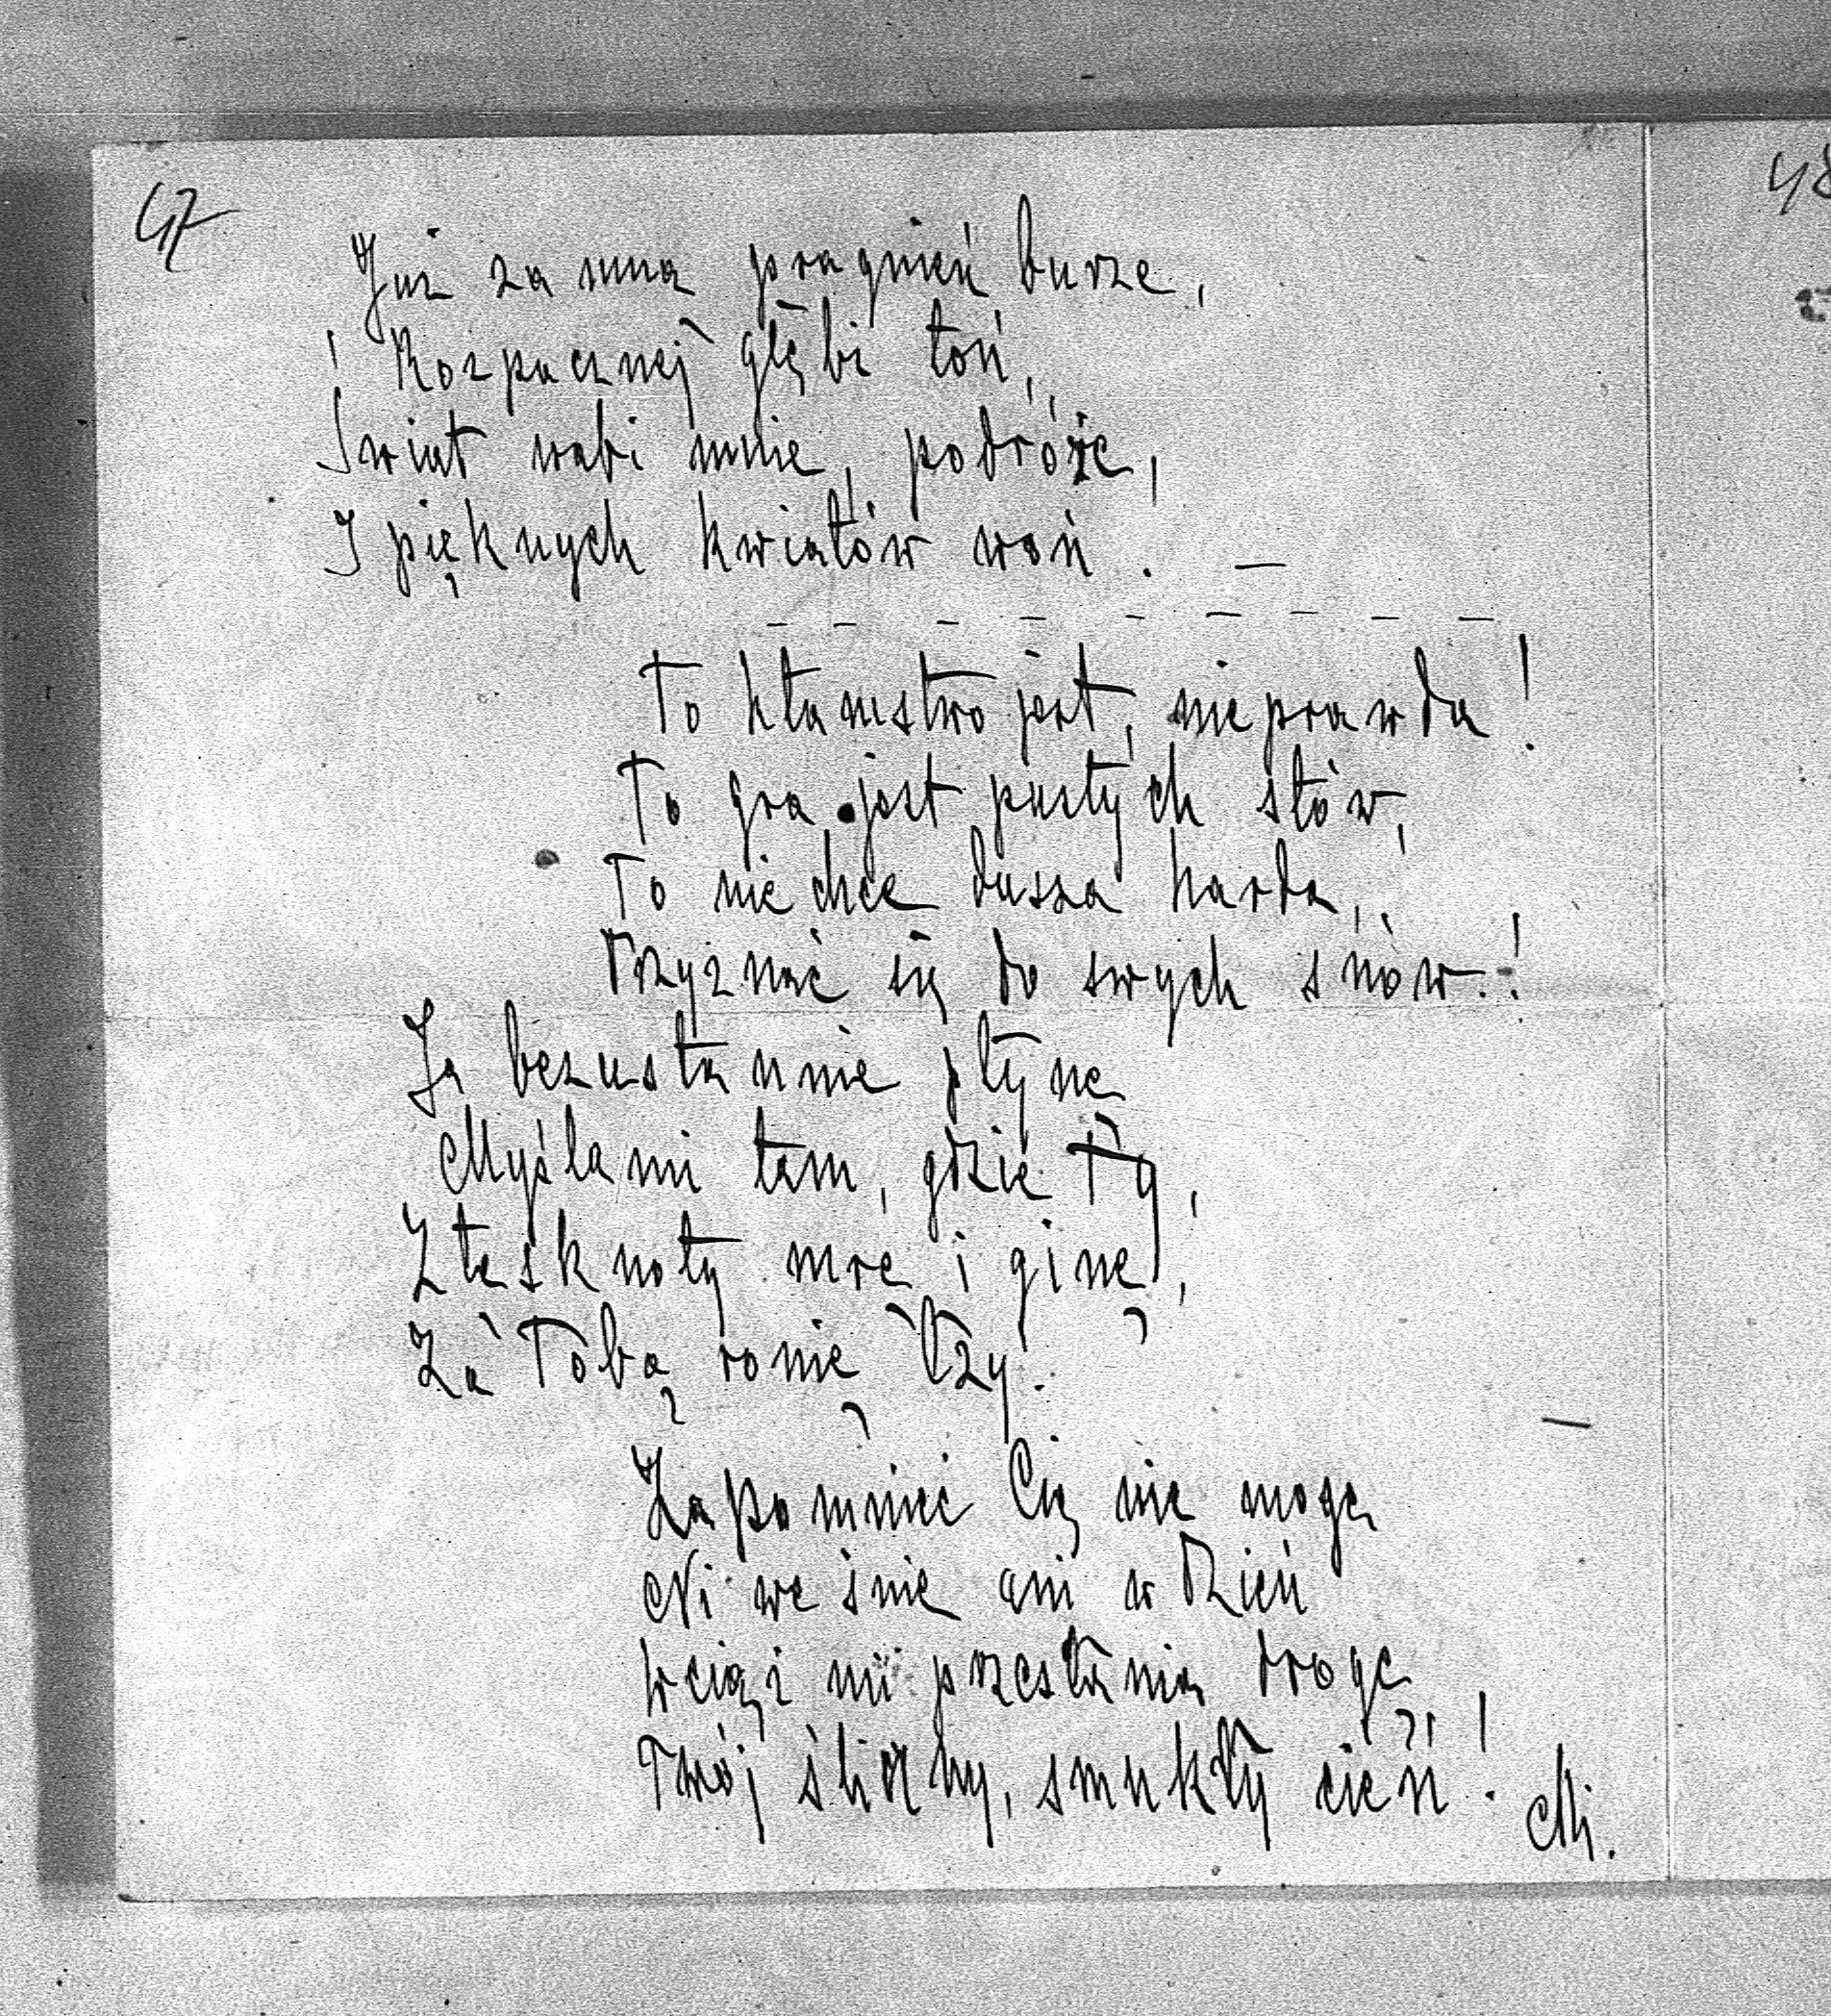 47
48
Już za mną pragnień burze,
Rozpacznej głębi toń,
Świat wabi mnie, podróże,
I pięknych kwiatów woń. —
— — — — — — — — —
To kłamstwo jest, nieprawda!
To gra jest pustych słów,
To nie chce dusza harda,
Przyznać się do swych snów!
Ja bezustannie płynę
Myślami tam, gdzie Ty,
Z tęsknoty mrę i ginę,
Za Tobą ronię łzy. —
Zapomnieć Cię nie mogę
Ni we śnie ani w dzień
Wciąż mi przesłania drogę
Twój śliczny, smukły cień!
Mi.